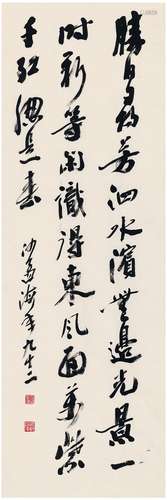 勝日尋芳泗水濱無邊光景一
時新等閑識得東風面萬紫
千紅總是春
沙孟海年九十二